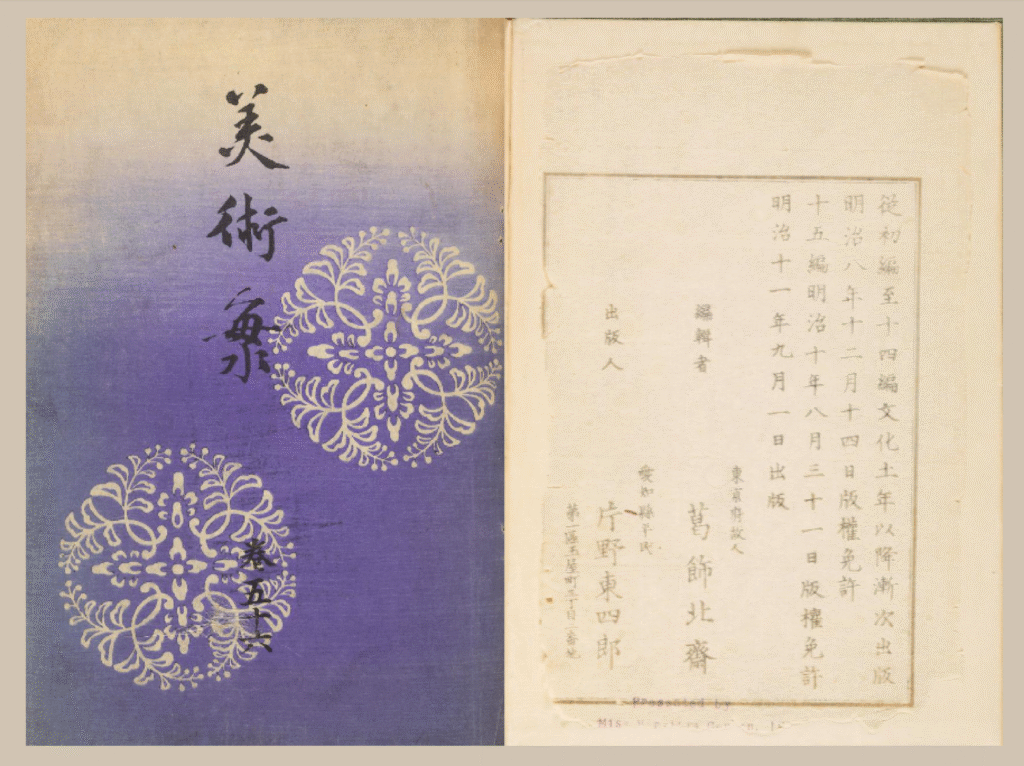 美術海
巻五十六
從初編至十四編文化十一年以降漸次出版
明治八年十二月十四日版權免許
十五編明治十年八月三十一日版權免許
明治十一年九月一日出版
東京府故人
編輯者 葛飾北齋
愛知縣平民
出版人 片野東四郎
第一區玉屋町
Presented by
Miss